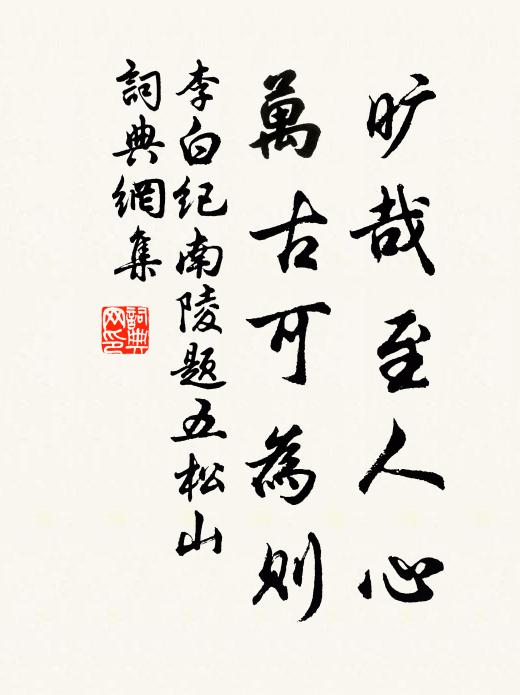 旷哉至人心
萬古可為則
李白纪南陵题五松山
詞典網集
詞典网印